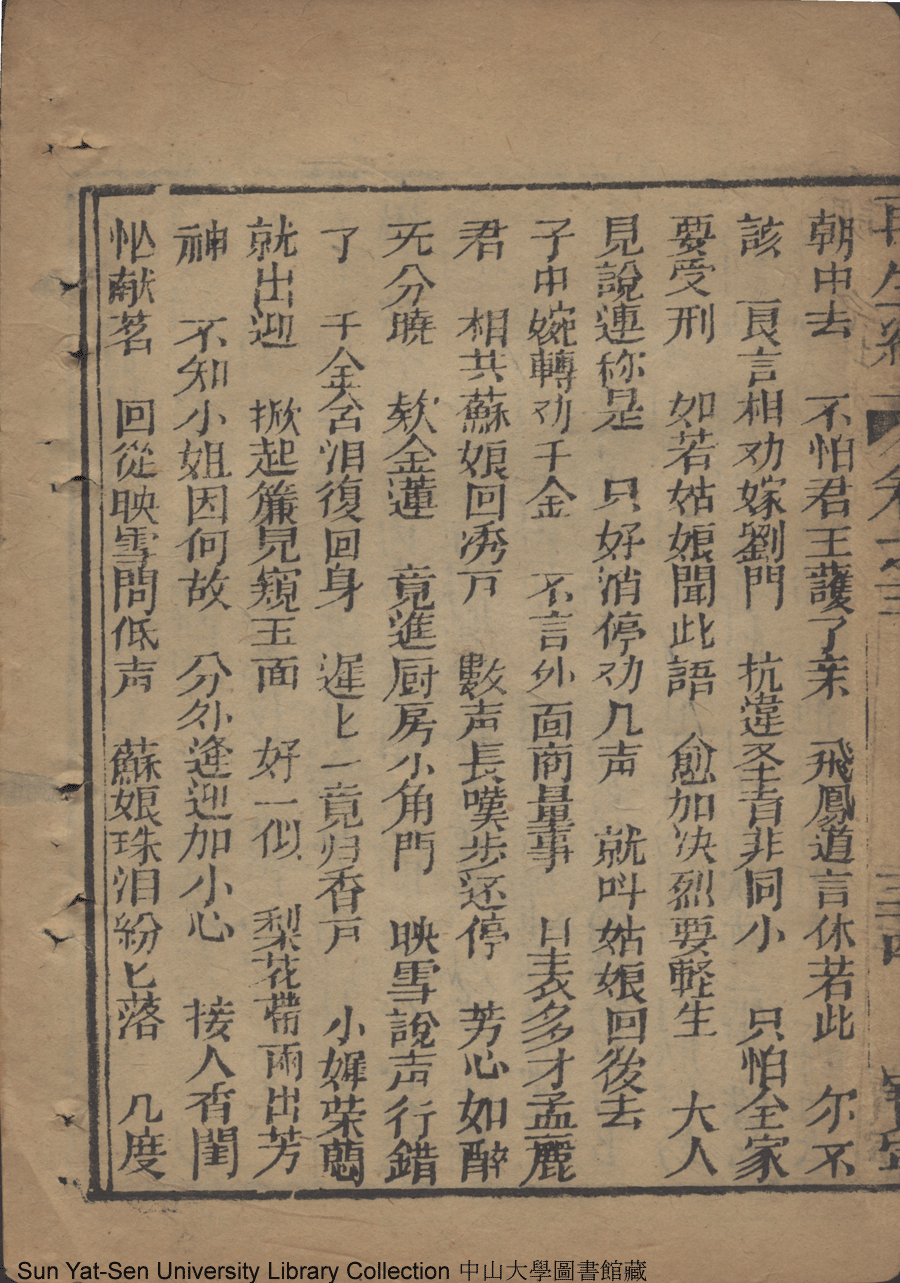 再生縁 卷之三 三四
朝中去 不怕君王護了亲 飛鳳道言休若此 尔不
該 良言相劝嫁劉門 抗違圣旨非同小 只怕全家
要受刑 如若姑娘聞此語 愈加决烈要軽生 大人
見說連称是 只好消停劝几声 就呌姑娘回後去
子中婉轉劝千金 不言外面商量事 且表多才孟麗
君 相共蘇娘回绣户 數声長嘆步还停 芳心如醉
死分曉 欸金蓮 竟進厨房小角門 映雪說声行錯
了 千金含泪復回身 遲匕一竟归香户 小婢荣蘭
就出迎 掀起簾見窺玉面 好一似 梨花帶雨出芳
神 不知小姐因何故 分外逢迎加小心 接人香閨
忙献茗 回從映雪問低声 蘇娘珠泪紛匕落 几度
Sun Yat-Sen University Library Collection 中山大學圖書館藏